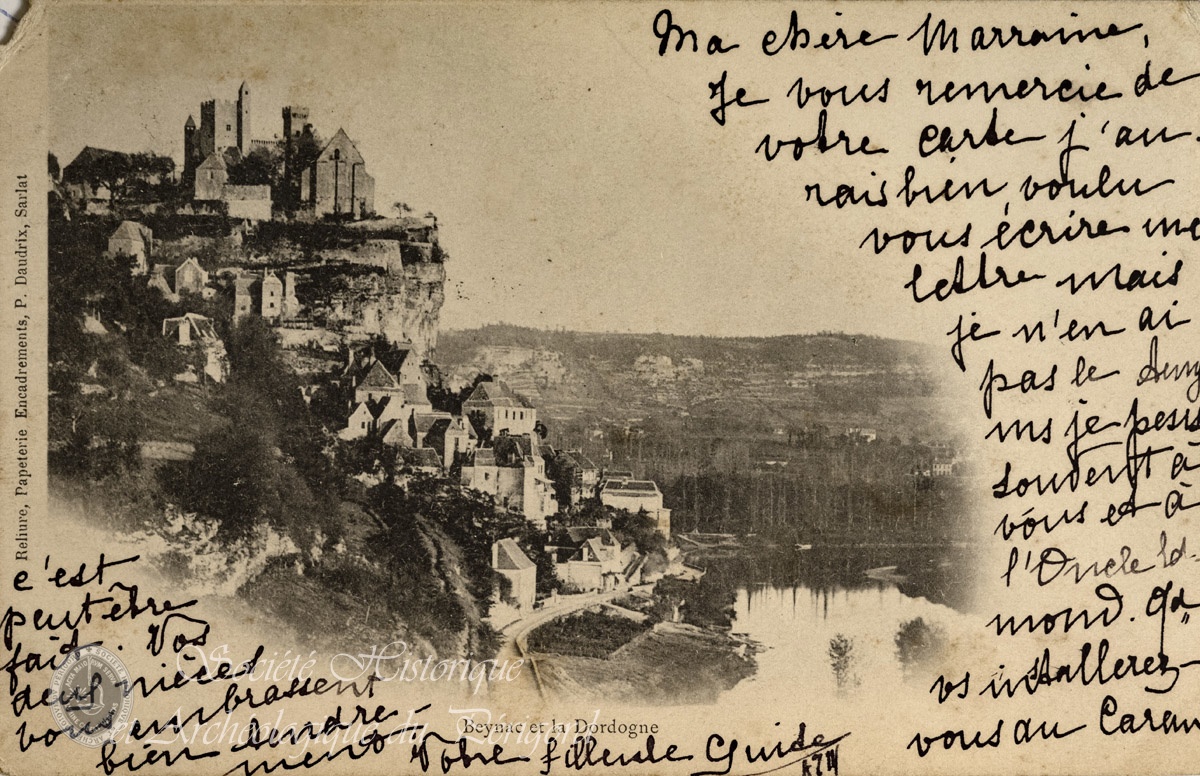 Ma chère Marraine,
Je vous remercie de
votre carte j'au-
rais bien voulu
vous écrire une
lettre mais
je n'en ai
pas le
je
souvent à
vous et à
l'Oncle Ed-
mond.
vs installerez
vous au
c'est
peut être
fait. Vos
deux nièces
vous embrassent
bien tendre-
ment
Votre filleule Guide
Beynac et la Dordogne
Reliure, Papeterie Encadrements, P. Daudrix, Sarlat
Société Historique
et Archéologique du Périgord